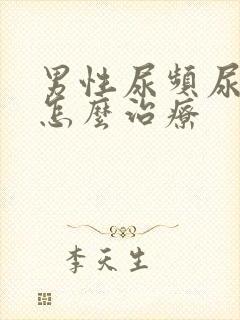 男性尿頻尿
怎麼治療
李天生